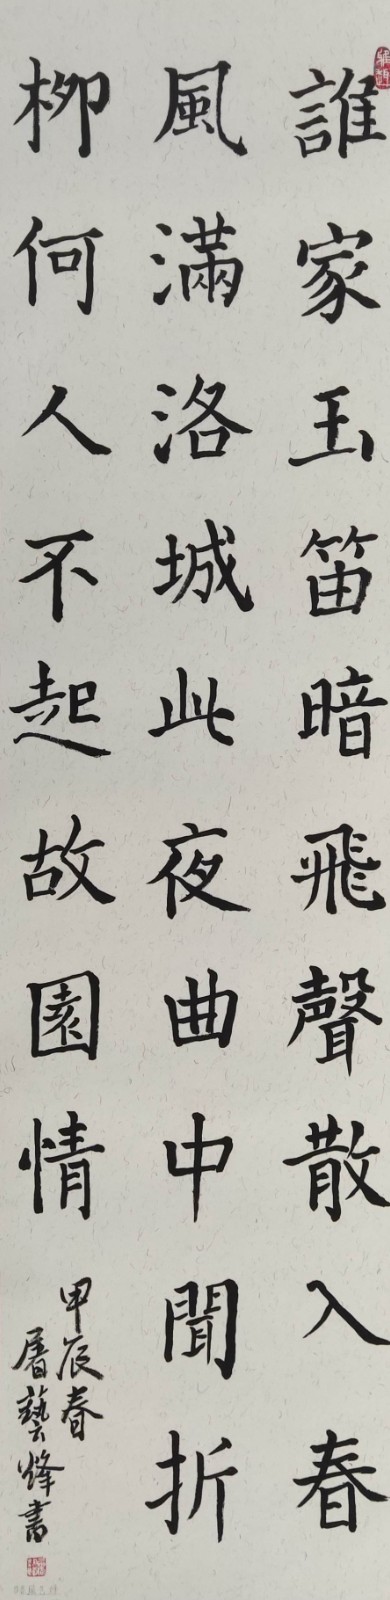 誰家玉笛暗飛聲散入春
風滿洛城此夜曲中聞折
柳何人不起故園情
甲辰春
屠藝烽書